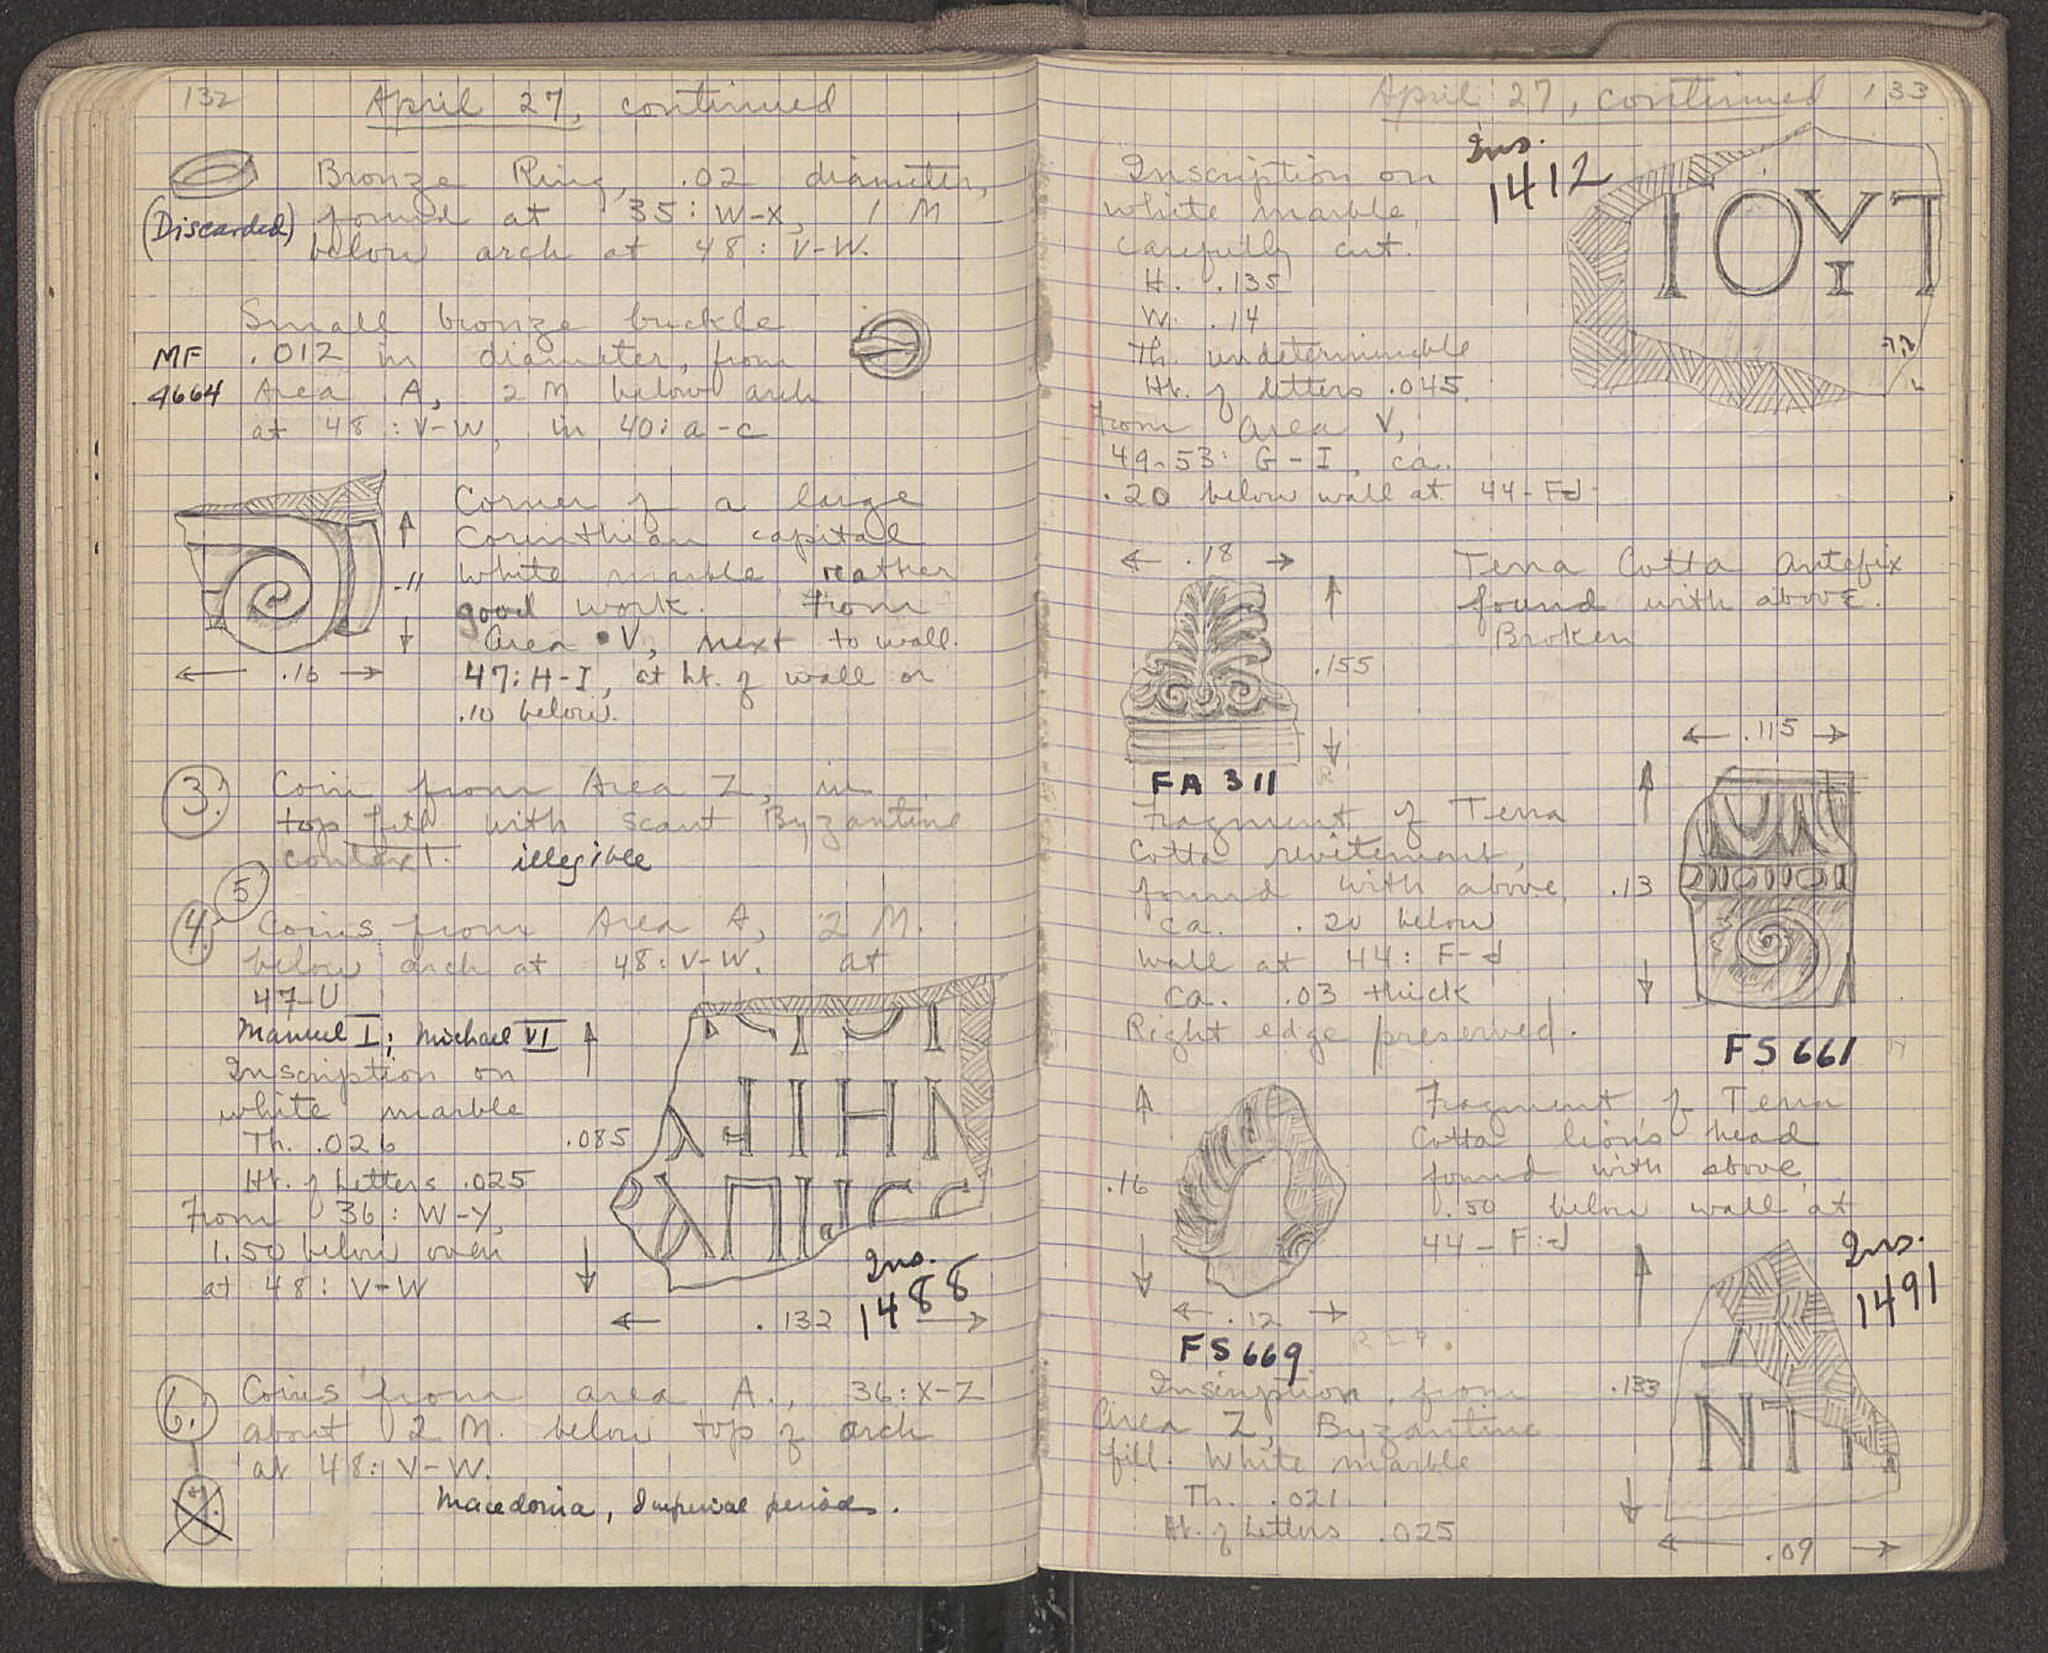 132
April 27, continued
Bronze Ring, .02 diameter,
(Discarded) found at 35: W-X, 1 M
below arch at 48: V-W.
Small bronze buckle
MF .012 in diameter, from
4664 Area A, 2 M below arch
at 48: V-W, in 40: a-c
Corner of a large
Corinthian capital
white marble rather
good work. From
Area V, next to wall.
47: H-I, at ht. of wall or
.10 below.
.11
.16
3. Coin from Area Z, in
top fill with scant Byzantine
context. illegible
5
4. Coins from Area A, 2 M.
below arch at 48: V-W. at
47-U
Manuel I; Michael VI
Inscription on
white marble
Th. .026
Ht. of Letters .025
From 36: W-Y,
1.50 below oven
at 48: V-W
.085
ΗΙΗΝ
.132
Ins.
1488
6. Coins from area A., 36: X-Z
about 2 M. below top of arch
at 48: V-W.
Macedonia, Imperial period.
April 27, continued 133
Inscription on
white marble,
carefully cut.
H. .135
W. .14
Th. undeterminable
Ht. of letters .045.
From Area V,
49-53: G-I, ca.
.20 below wall at 44-F-d
Ins.
1412
ΙΟΥΤ
Ι
.18
.155
Terra Cotta Antefix
found with above.
Broken
FA 311
Fragment of Terra
Cotta revitement,
found with above,
ca. .20 below
wall at 44: F-d
ca. .03 thick
Right edge preserved.
.115
.13
FS 661
.16
.12
FS 669
Fragment of Terra
Cotta lion's head
found with above,
.50 below wall at
44-F:d
Inscription from
Area Z, Byzantine
fill. White marble
Th. .021
Ht. of Letters .025
Ins.
1491
.133
ΝΤ
.09